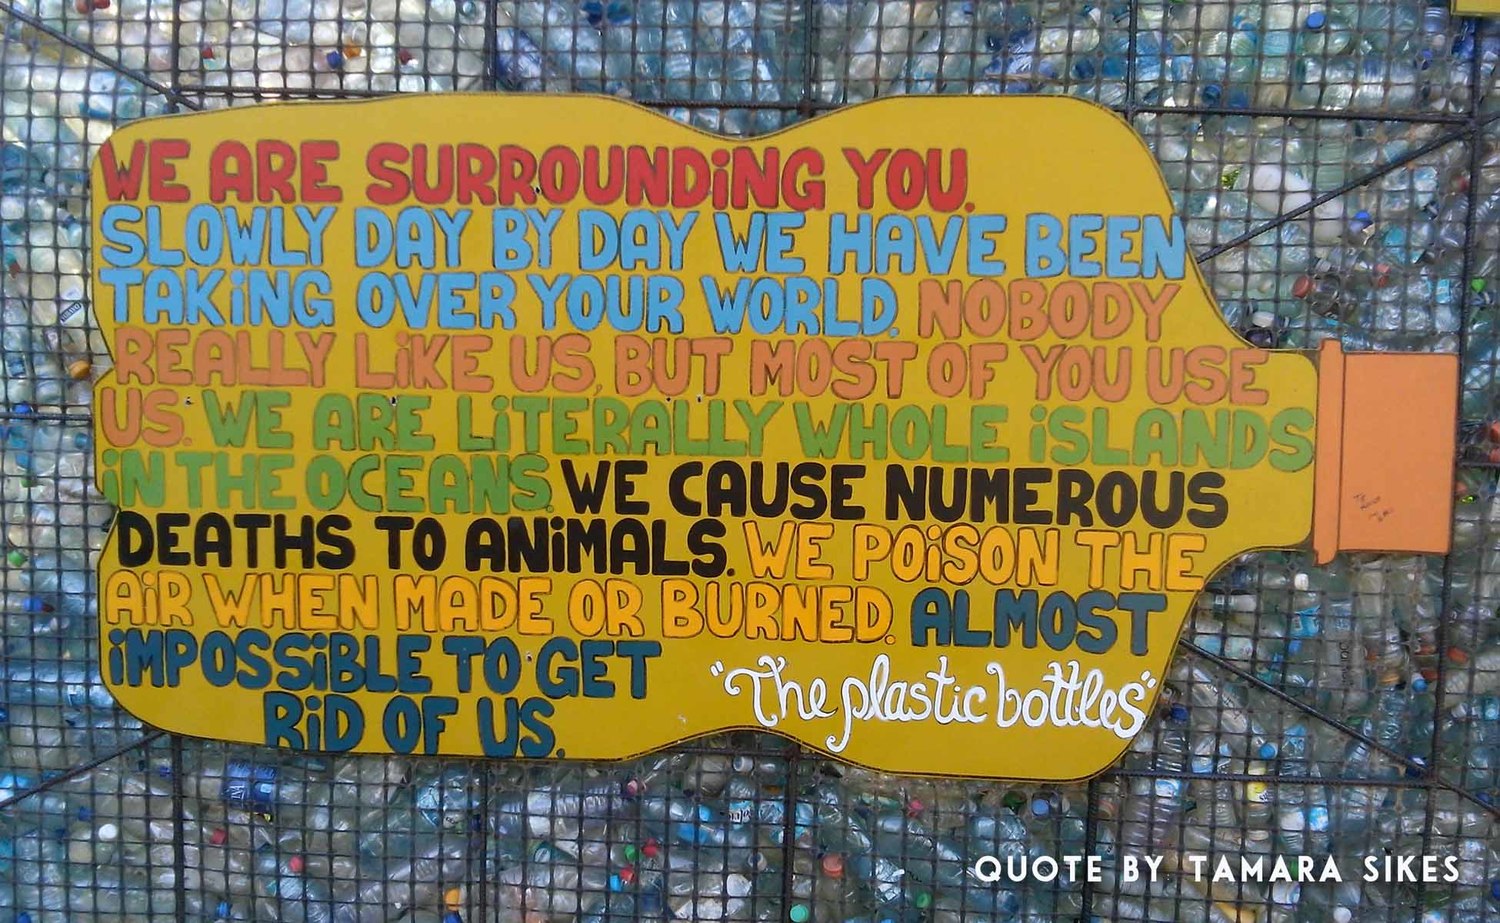 WE ARE SURROUNDiNG YOU.
SLOWLY DAY BY DAY WE HAVE BEEN
TAKiNG OVER YOUR WORLD. NOBODY
REALLY LiKE US, BUT MOST OF YOU USE
US. WE ARE LiTERALLY WHOLE iSLANDS
iN THE OCEANS. WE CAUSE NUMEROUS
DEATHS TO ANiMALS. WE POiSON THE
AiR WHEN MADE OR BURNED. ALMOST
iMPOSSiBLE TO GET
RiD OF US.
"The plastic bottles"
QUOTE BY TAMARA SIKES